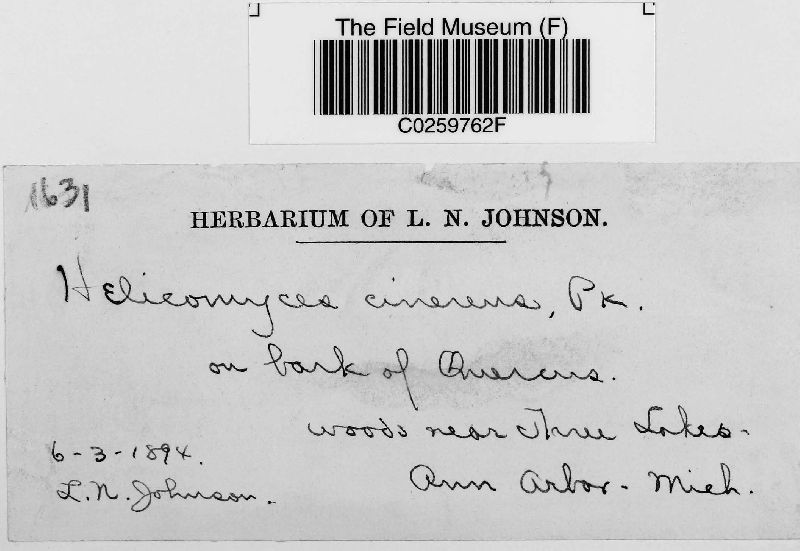 The Field Museum (F)
C0259762F
1631
HERBARIUM OF L. N. JOHNSON.
Helicomyces cinereus, Pk.
on bark of Quercus.
woods near Three Lakes-
6-3-1894.
Ann Arbor- Mich.
L.N. Johnson.